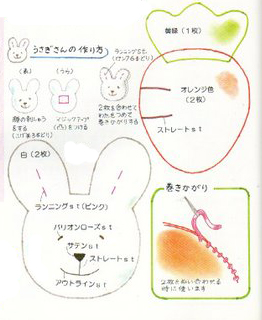 うさぎさんの作り方
ランニングst.
(ピンク2本どり)
(表)
(うら)
顔の刺しゅう
をする
(こげ茶3本どり)
マジックテープ
(凸)をつける
2枚を合わせて
わたをつめて
巻きかがりする
黄緑(1枚)
オレンジ色
(2枚)
ストレートst
白(2枚)
ランニングst(ピンク)
バリオンローズst
サテンst
ストレートst
アウトラインst
巻きかがり
2枚をぬい合わせる
時に使います